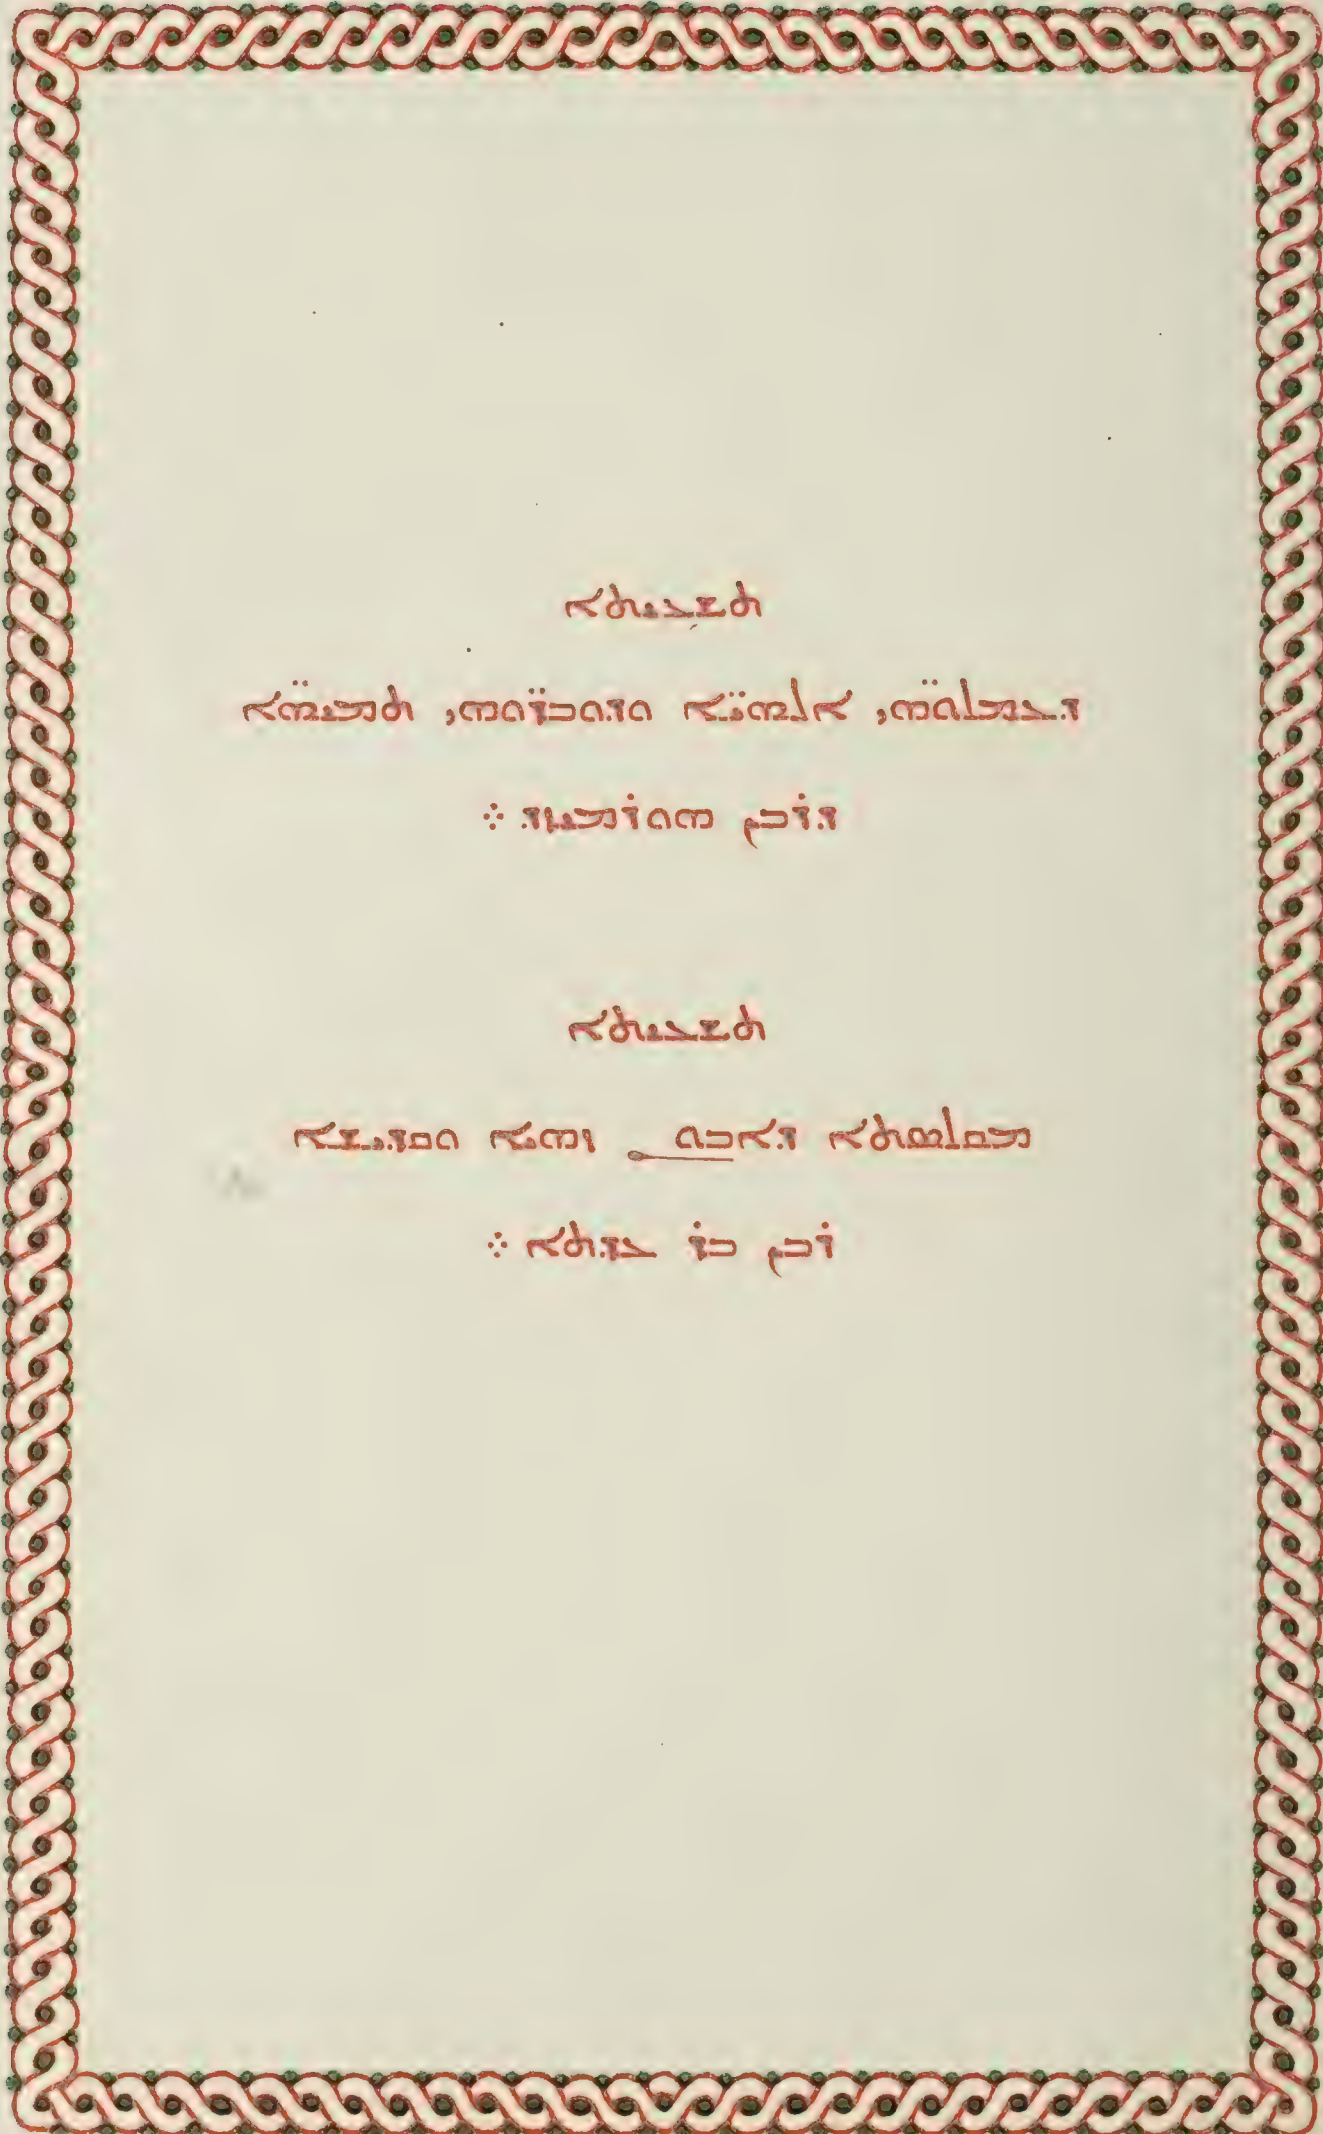 ܬܫܥܝܬܐ
ܕܥܡ̈ܠܘܗܝ ܐܠܗܝ̈ܐ ܘܕܘܒܪ̈ܘܗܝ ܬܡܝܗ̈ܐ
ܕܪܒܢ ܗܘܪܡܝܙܕ ܀
ܬܫܥܝܬܐ
ܡܩܠܣܬܐ ܕܐܒܘܢ ܙܗܝܐ ܘܩܕܝܫܐ
ܪܒܢ ܒܪ ܥܕܬܐ ܀